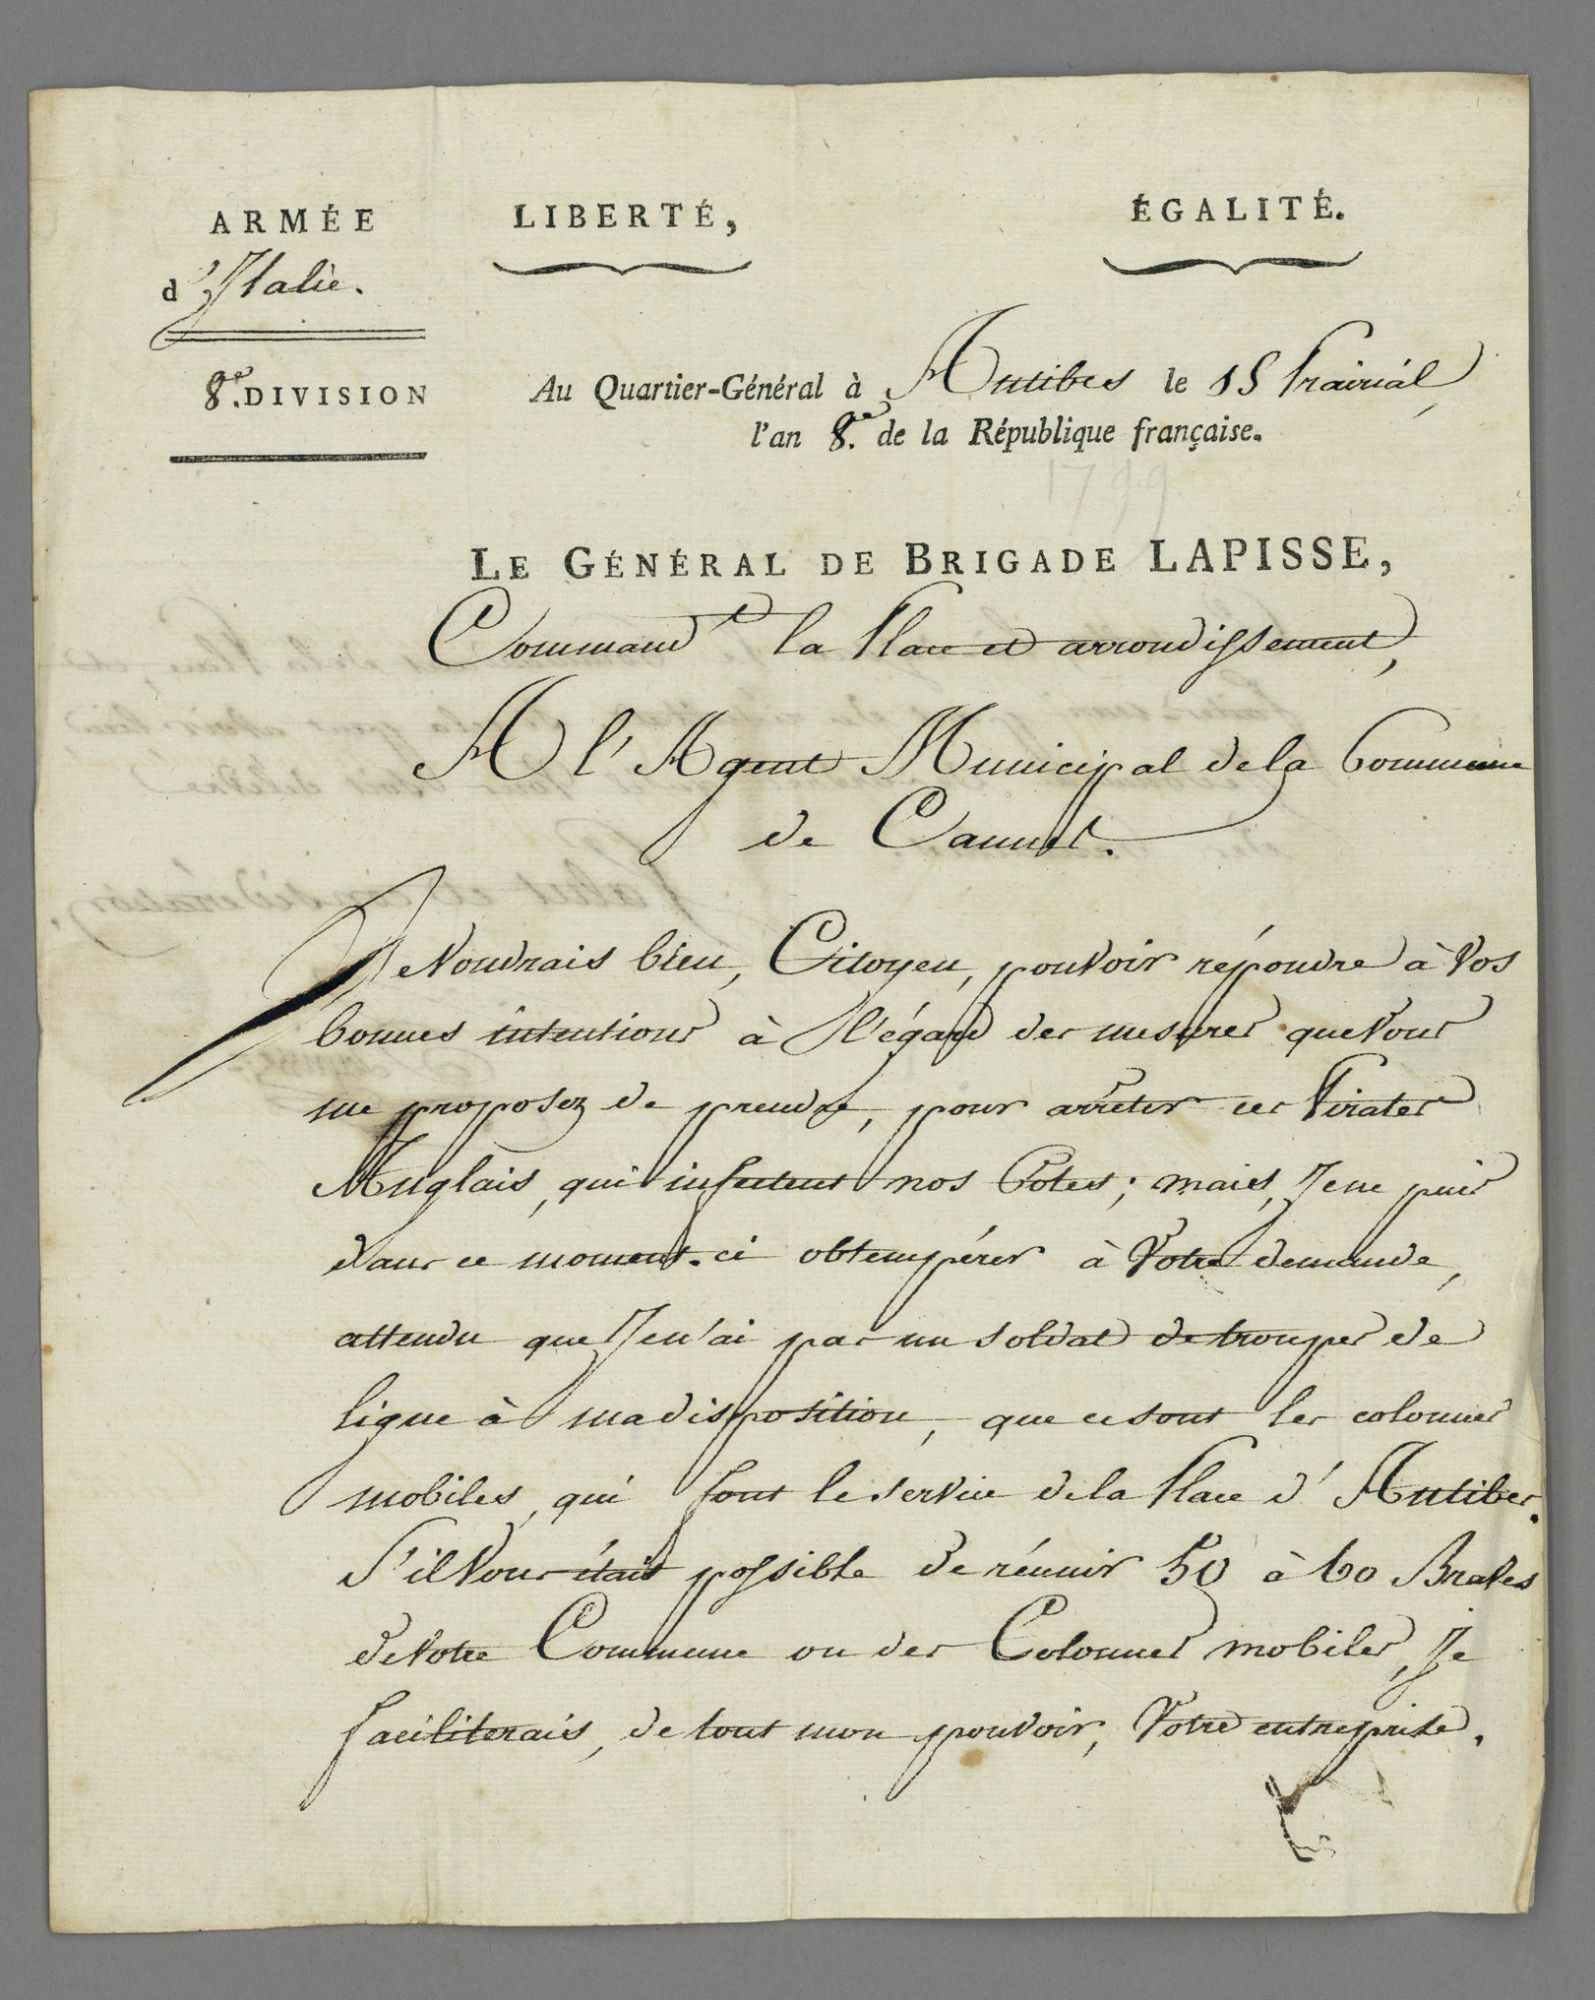 ARMÉE
d'Italie.
8.e DIVISION
LIBERTÉ, ÉGALITÉ.
Au Quartier-Général à Antibes le 18 Prairial
l'an 8.e de la République française.
1799
LE GÉNÉRAL DE BRIGADE LAPISSE,
Command.t la Place et arrondissement,
A l'Agent Municipal de la Commune
de Cannet.
Je Voudrais bien, Citoyen, pouvoir répondre à Vos
bonnes intentions à l'égard des mesures que Vous
me proposez de prendre, pour arrêter ces Pirates
Anglais, qui infectent nos Côtes; mais, Je ne puis
dans ce moment-ci obtempérer à Votre demande,
attendu que Je n'ai pas un soldat de troupes de
ligne à ma disposition, que ce sont les colonnes
mobiles, qui font le service de la Place d'Antibes.
S'il Vous était possible de réunir 50 à 60 Braves
de Votre Commune ou des Colonnes mobiles, Je
faciliterais, de tout mon pouvoir, Votre entreprise.